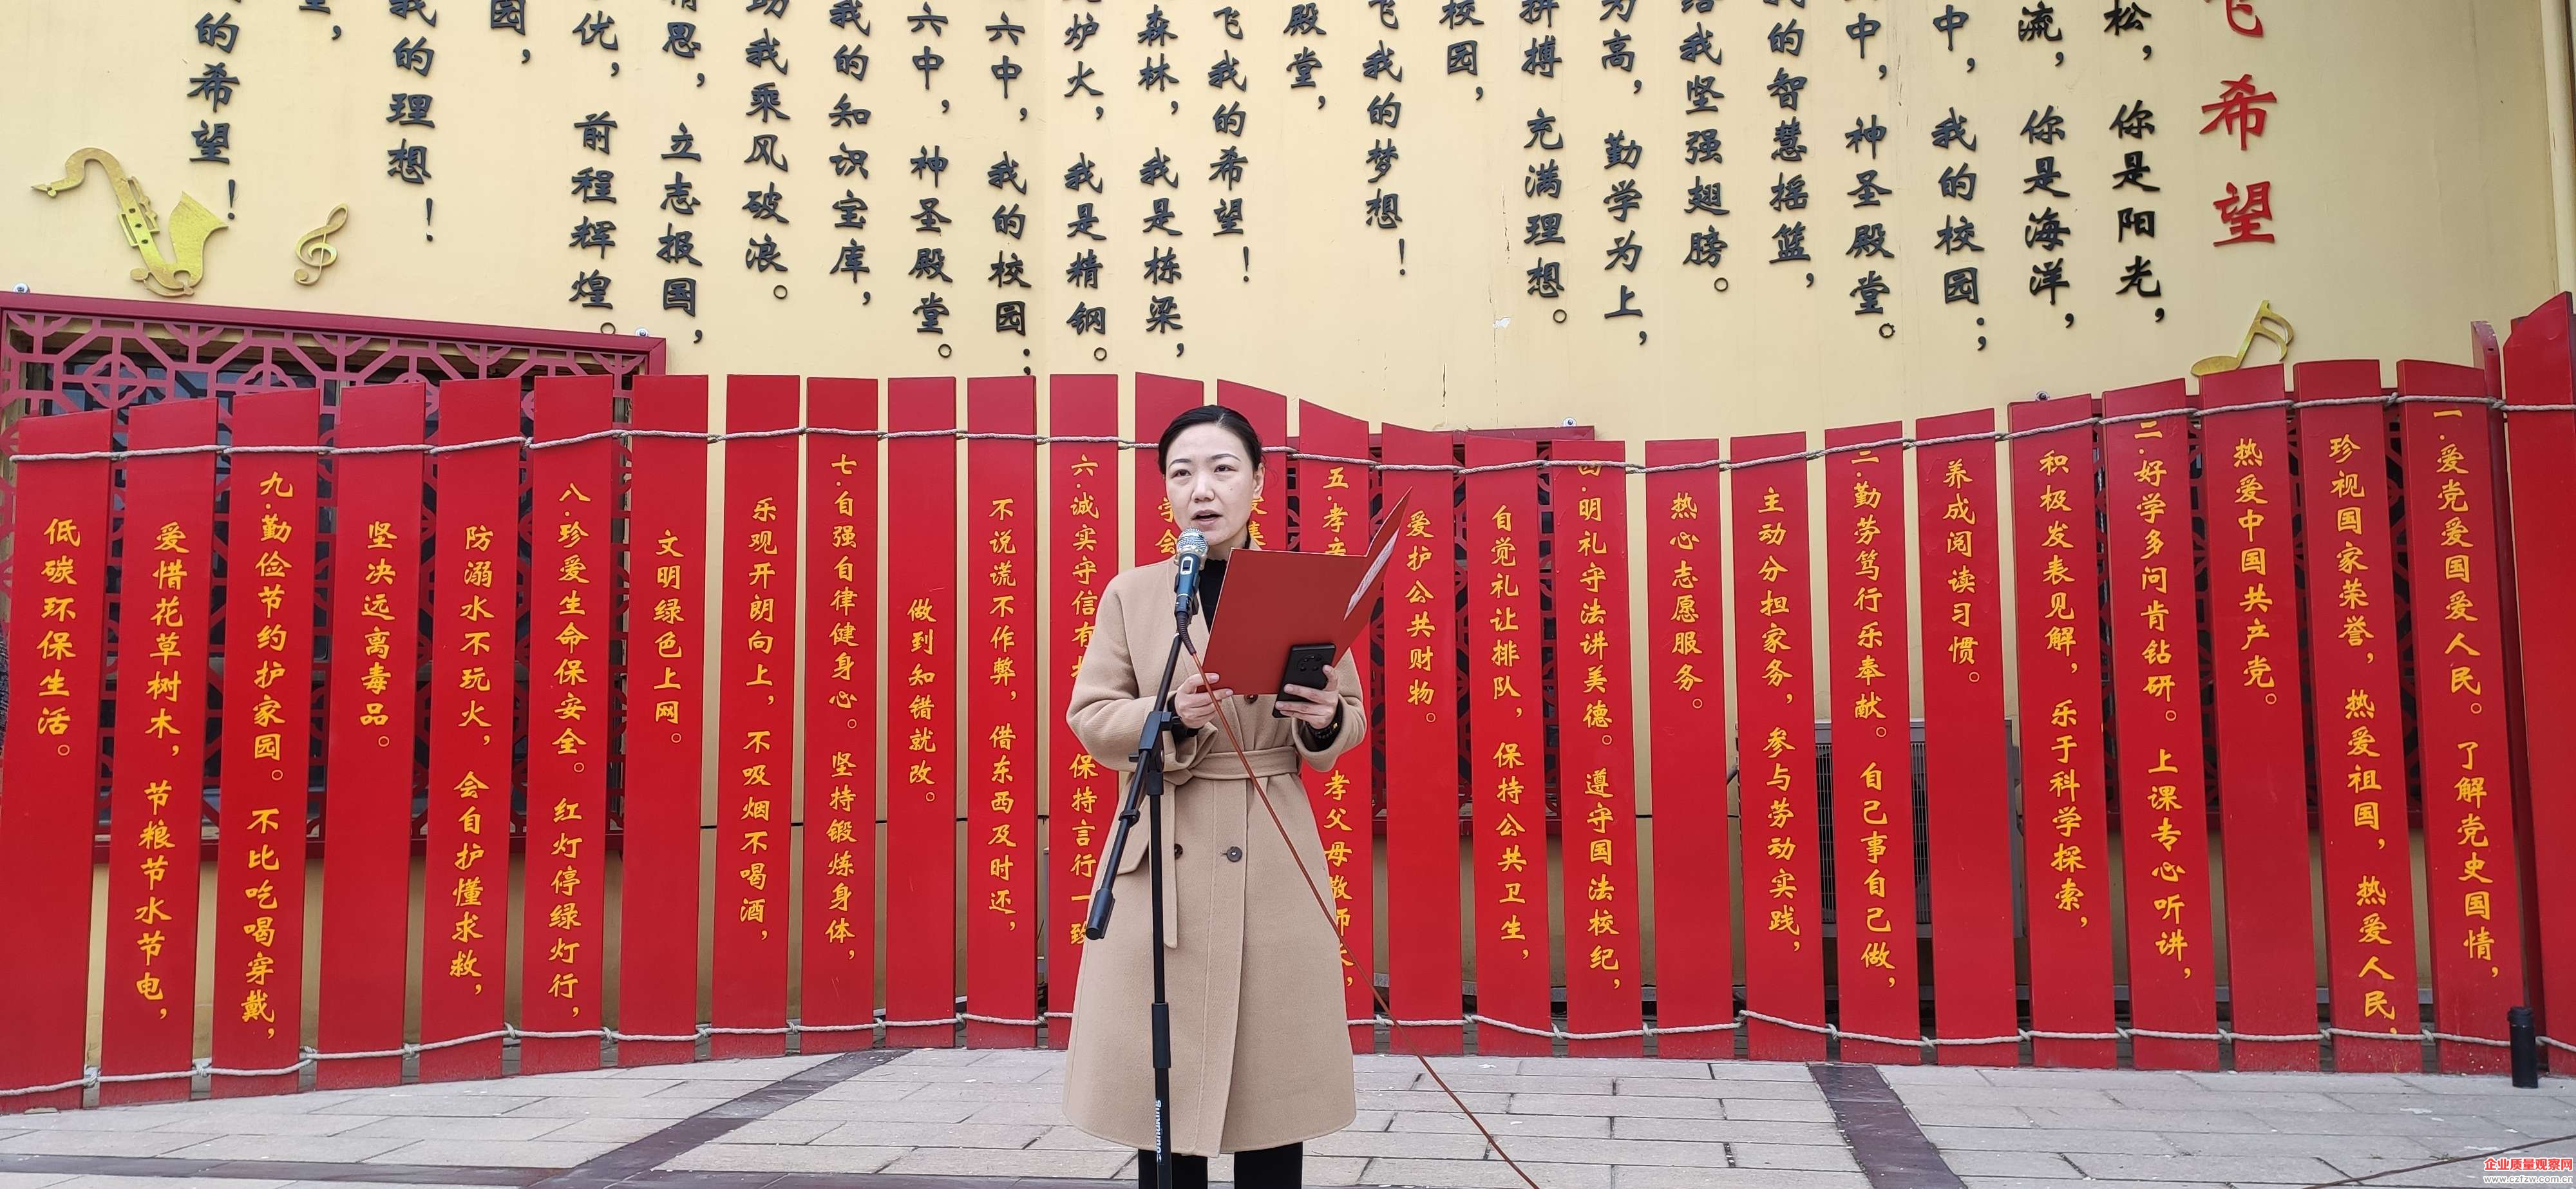 飞希望
松，你是阳光，
流，你是海洋，
中，我的校园；
中，神圣殿堂。
的智慧摇篮，
给我坚强翅膀。
为高，勤学为上，
拼搏 充满理想。
校园，
飞我的梦想！
殿堂，
飞我的希望！
森林，我是栋梁，
炉火，我是精钢。
六中，我的校园；
六中，神圣殿堂。
我的知识宝库，
助我乘风破浪。
思，立志报国，
优，前程辉煌。
园，
我的理想！
，
的希望！
一.爱党爱国爱人民。了解党史国情，
珍视国家荣誉，热爱祖国，热爱人民，
热爱中国共产党。
二.好学多问肯钻研。上课专心听讲，
积极发表见解，乐于科学探索，
养成阅读习惯。
三.勤劳笃行乐奉献。自己事自己做，
主动分担家务，参与劳动实践，
热心志愿服务。
四.明礼守法讲美德。遵守国法校纪，
自觉礼让排队，保持公共卫生，
爱护公共财物。
五.孝亲 孝父母敬师长，
学会
六.诚实守信有 保持言行一致
不说谎不作弊，借东西及时还，
做到知错就改。
七.自强自律健身心。坚持锻炼身体，
乐观开朗向上，不吸烟不喝酒，
文明绿色上网。
八.珍爱生命保安全。红灯停绿灯行，
防溺水不玩火，会自护懂求救，
坚决远离毒品。
九.勤俭节约护家园。不比吃喝穿戴，
爱惜花草树木，节粮节水节电，
低碳环保生活。
企业质量观察网
www.czfzw.com.cn